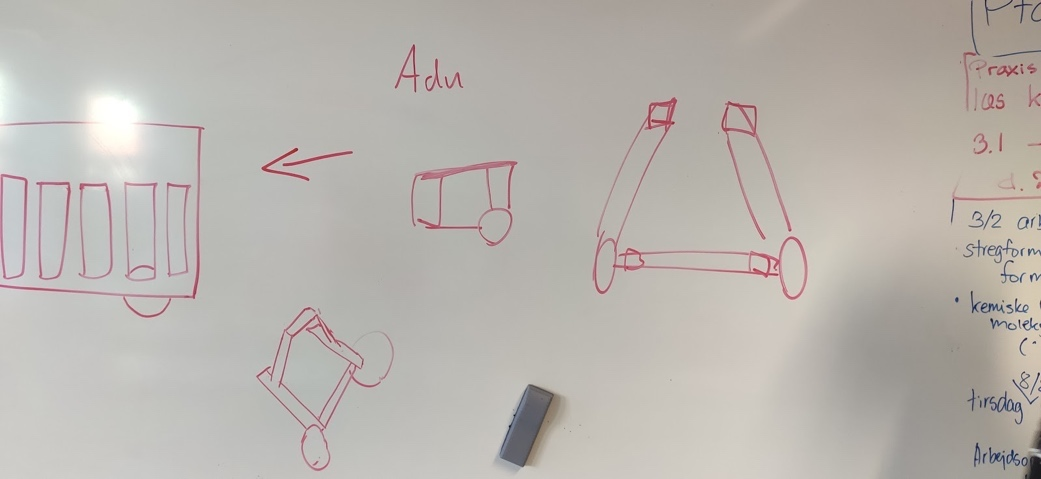 Adu
Praxis
læs k
3.1 -
d.
3/2 arb
stregform
form
• kemiske
molek
(·
8/
tirsdag
Arbejdso